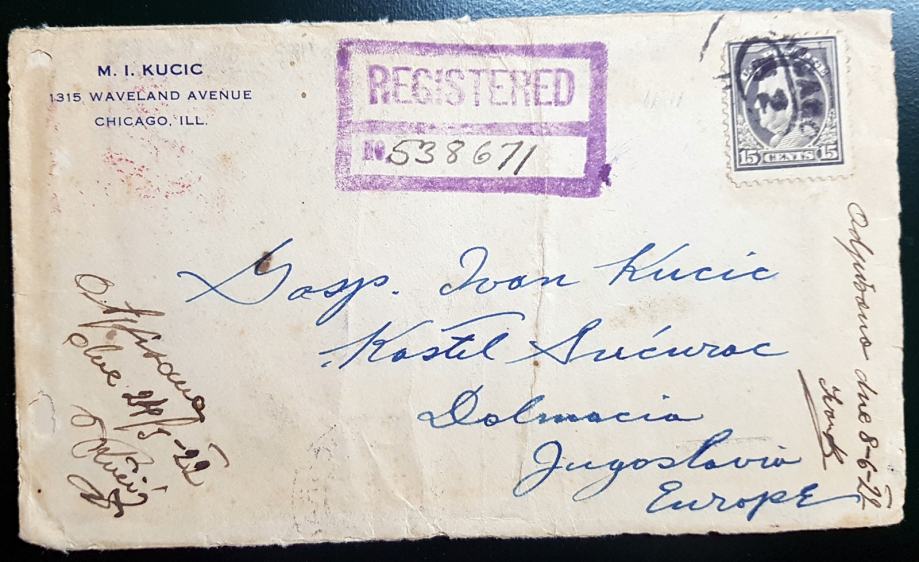 M. I. KUCIC
1315 WAVELAND AVENUE
CHICAGO, ILL.
REGISTERED
No 538671
15 CENTS 15
Gosp. Ivan Kucic
Kaštel Sućurac
Dalmacia
Jugoslavia
Europe
dne 29/5-22
Odpisano dne 8-6-22